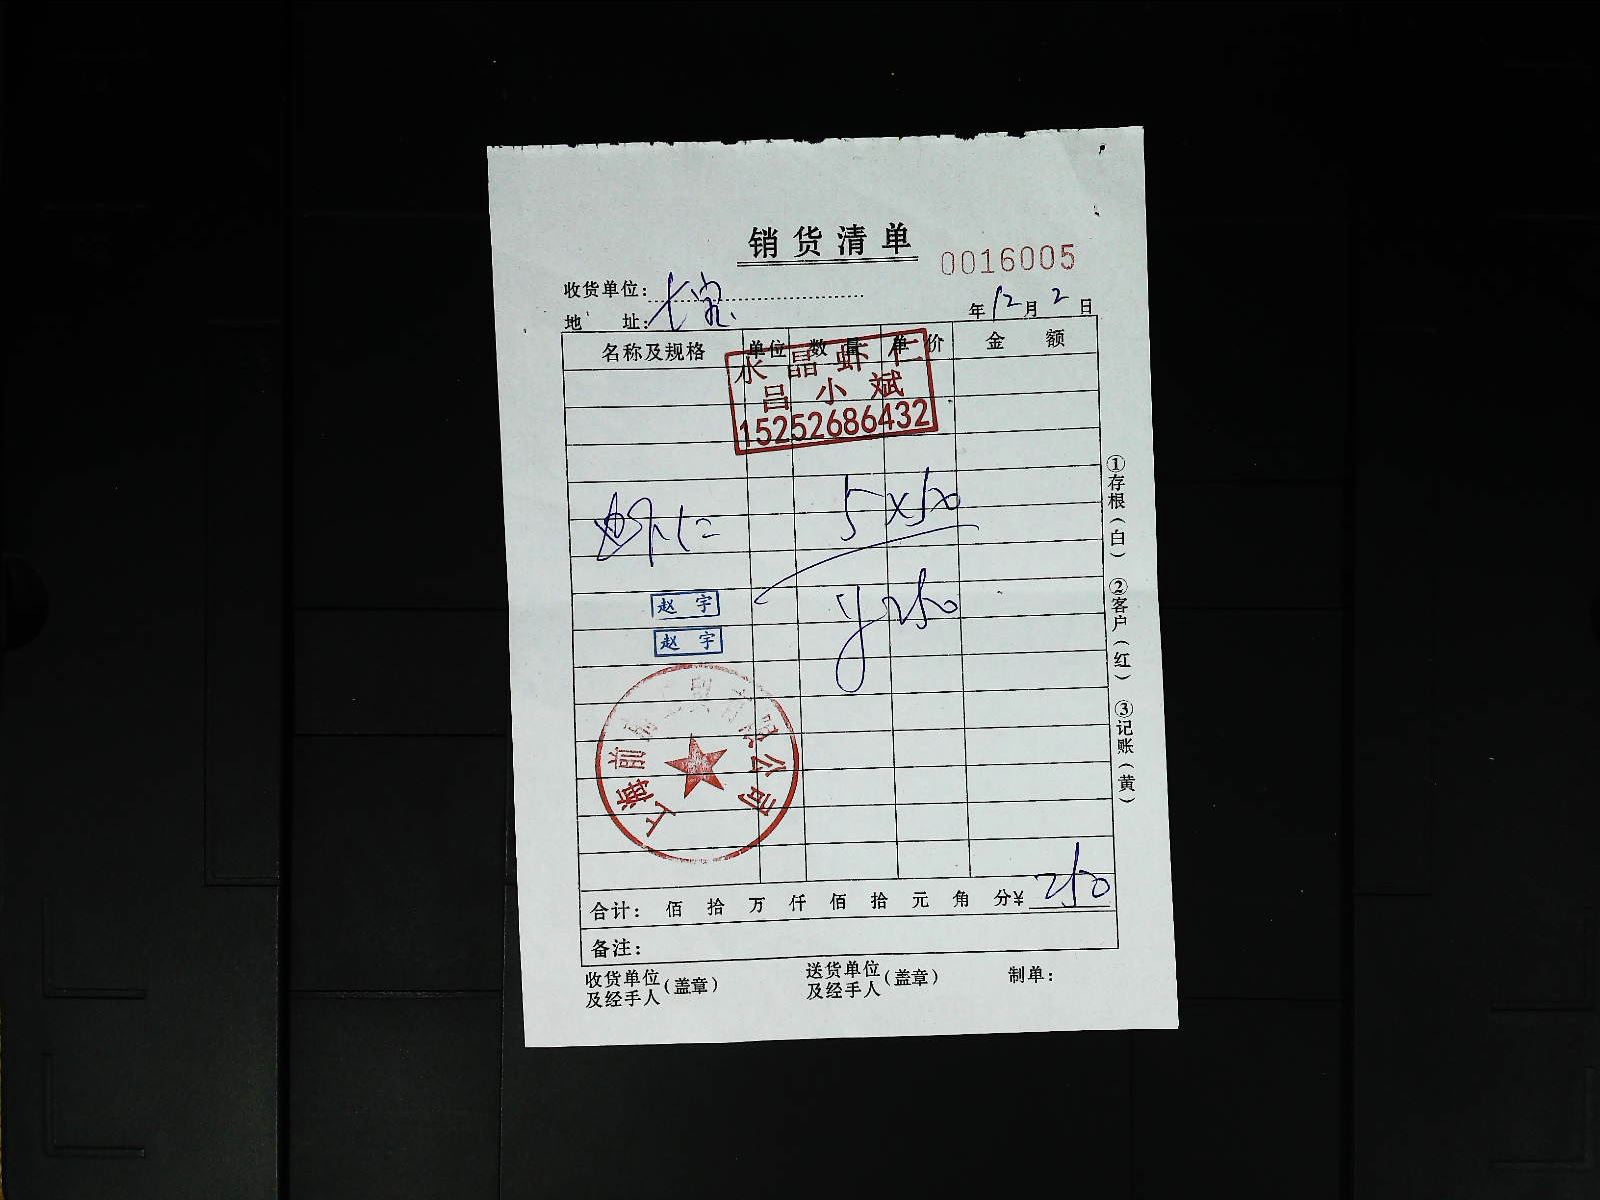 销货清单
0016005
收货单位：
地 址：
七宝
年12月2日
名称及规格 单位 数量 单价 金额
水晶虾仁
吕小斌
15252686432
虾仁 5×50
¥250
赵宇
赵宇
上海 前 限公司
合计： 佰 拾 万 仟 佰 拾 元 角 分¥ 250
备注：
收货单位及经手人（盖章） 送货单位及经手人（盖章） 制单：
①存根（白） ②客户（红） ③记账（黄）